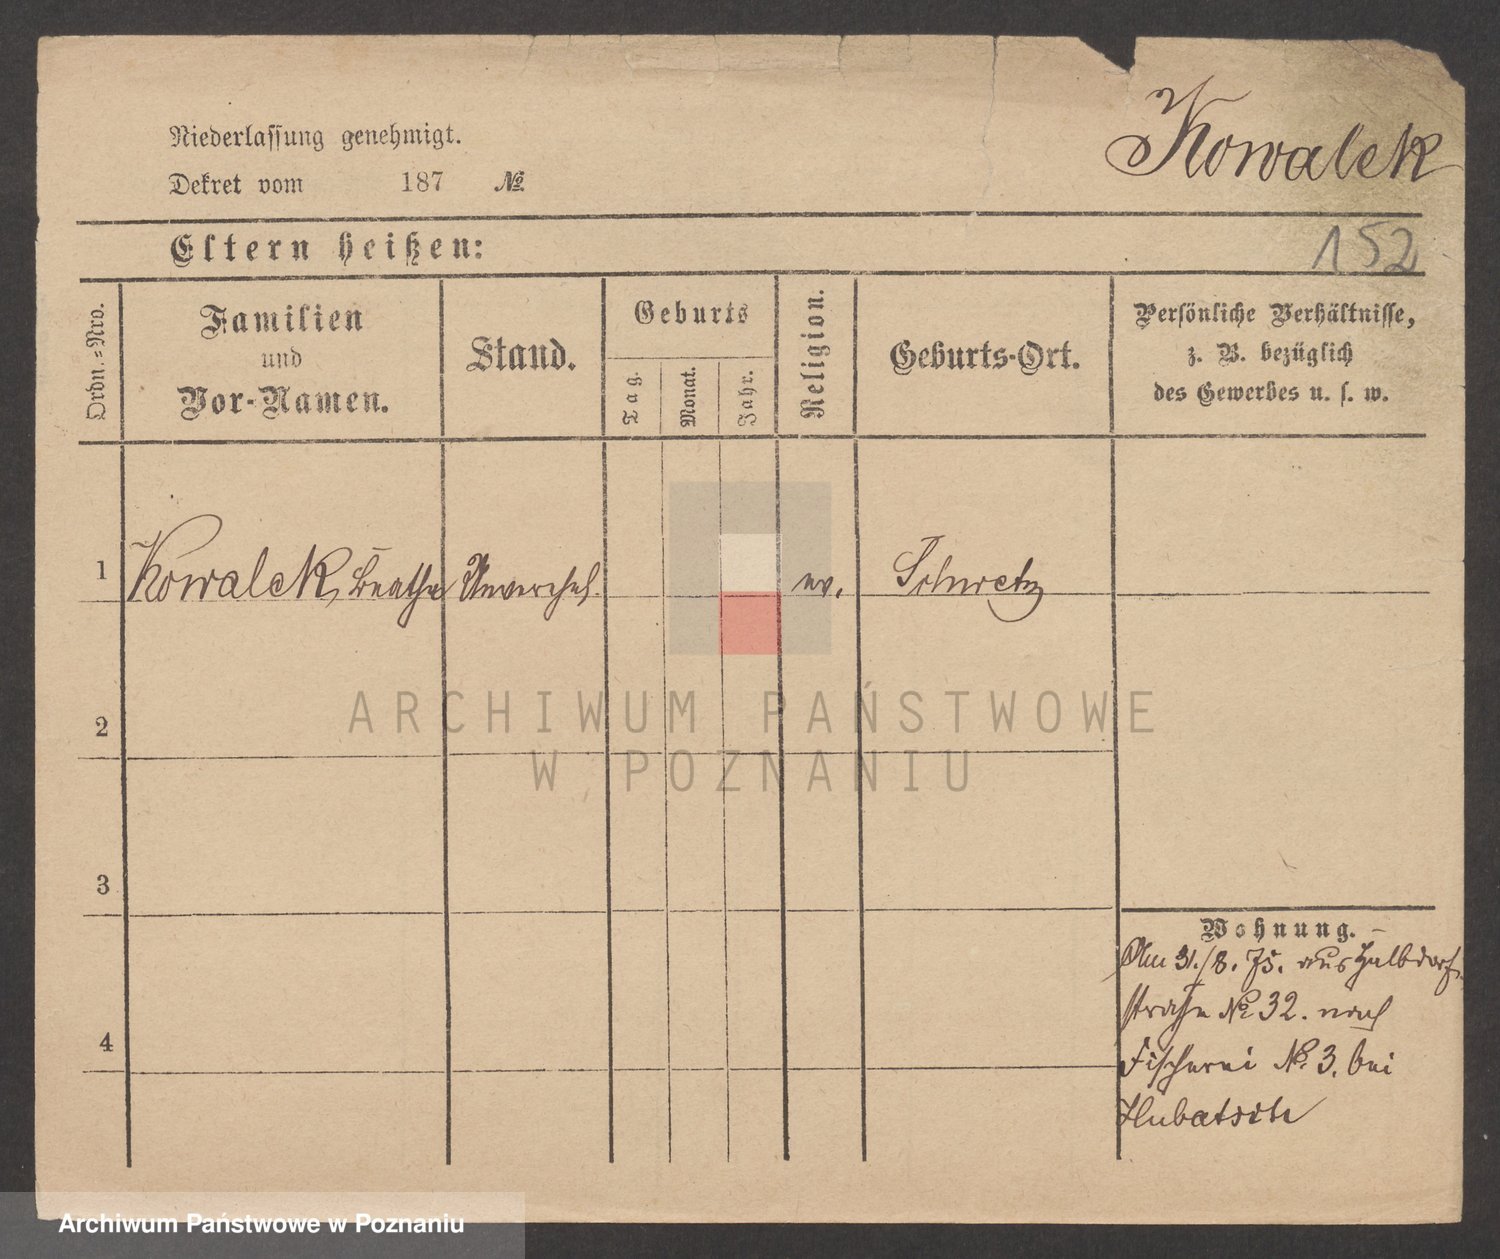 Kowalek
Niederlassung genehmigt.
Dekret vom 187 №
152
Eltern heißen:
Ordn.=Nro.
Familien
und
Vor-Namen.
Stand.
Geburts
Tag.
Monat.
Jahr.
Religion.
Geburts-Ort.
Persönliche Verhältnisse,
z. B. bezüglich
des Gewerbes u. s. w.
1 Kowalek, Beathe Unverehel. ev. Schwetz
2
3
4
Wohnung.
Am 31./8. 75. aus Halbdorf
straße № 32. nach
Fischerei № 3. bei
Hubatsch
ARCHIWUM PAŃSTWOWE
W POZNANIU
Archiwum Państwowe w Poznaniu